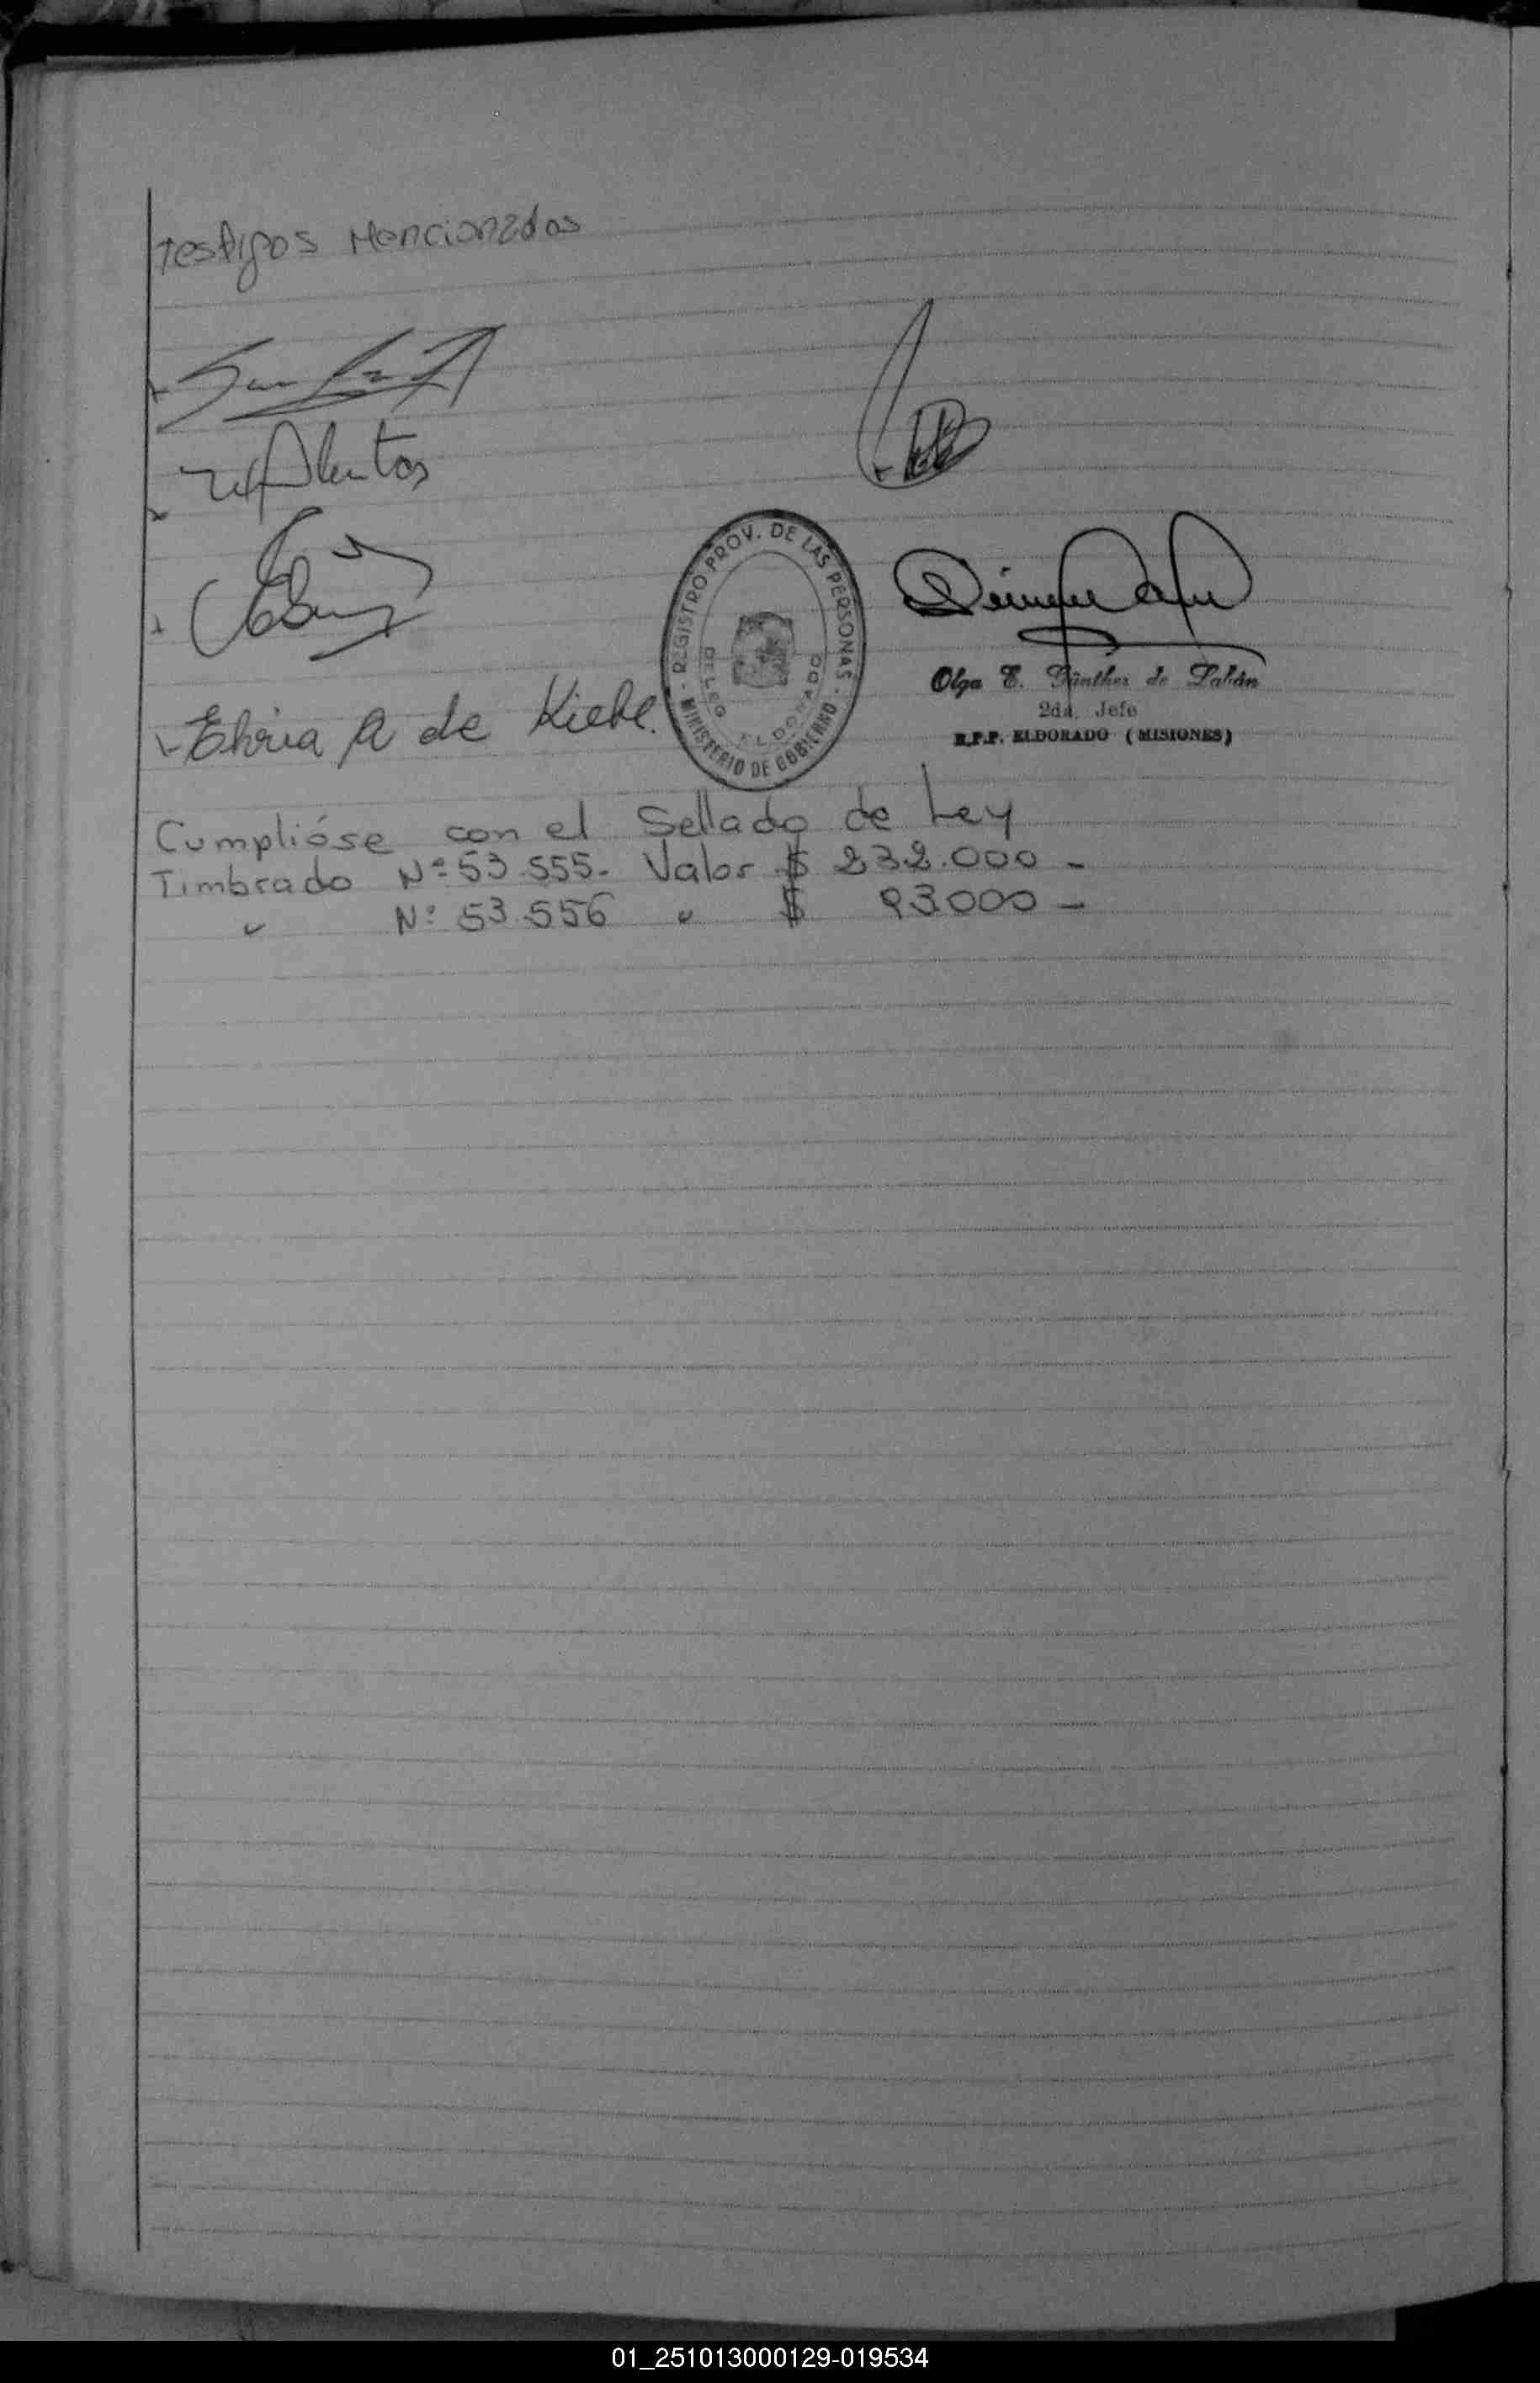 Testigos Mencionados
Elvira A de Kiebe.
REGISTRO PROV. DE LAS PERSONAS
MINISTERIO DE GOBIERNO
DELEG ELDORADO
Olga E. Günther de
2da. Jefe
R.P.P. ELDORADO (MISIONES)
Cumplióse con el Sellado de Ley
Timbrado Nº 53.555. Valor $ 232.000 -
" Nº 53.556 " $ 93000 -
01_251013000129-019534